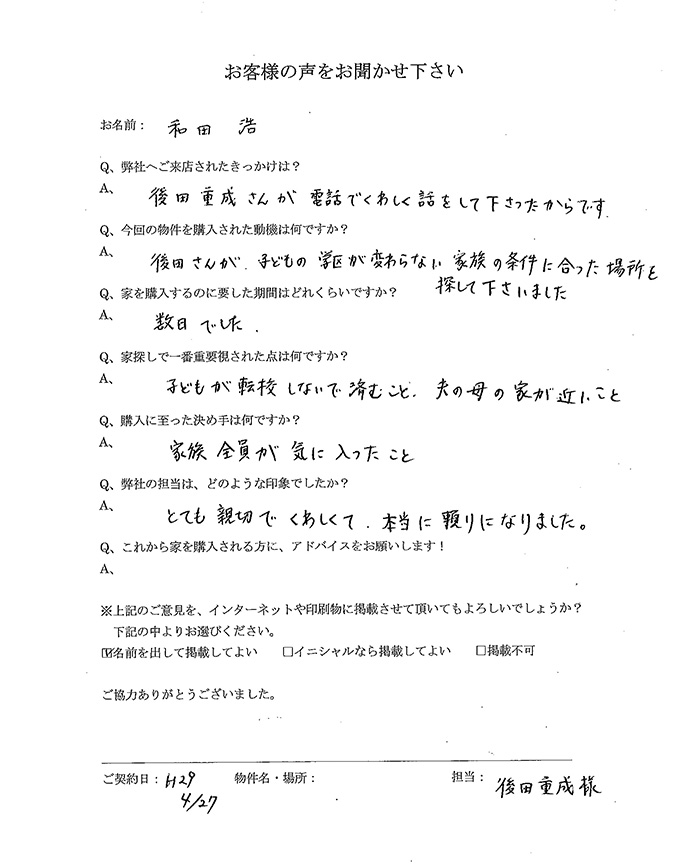 お客様の声をお聞かせ下さい
お名前： 和田 浩
Q、弊社へご来店されたきっかけは？
A、 後田重成さんが電話でくわしく話をして下さったからです.
Q、今回の物件を購入された動機は何ですか？
A、 後田さんが、子どもの学区が変わらない家族の条件に合った場所を
探して下さいました
Q、家を購入するのに要した期間はどれくらいですか？
A、 数日でした.
Q、家探しで一番重要視された点は何ですか？
A、 子どもが転校しないで済むこと. 夫の母の家が近いこと
Q、購入に至った決め手は何ですか？
A、 家族全員が気に入ったこと
Q、弊社の担当は、どのような印象でしたか？
A、 とても親切でくわしくて、本当に頼りになりました。
Q、これから家を購入される方に、アドバイスをお願いします！
A、
※上記のご意見を、インターネットや印刷物に掲載させて頂いてもよろしいでしょうか？
下記の中よりお選びください。
☑名前を出して掲載してよい □イニシャルなら掲載してよい □掲載不可
ご協力ありがとうございました。
ご契約日：H29 物件名・場所： 担当： 後田重成様
4/27